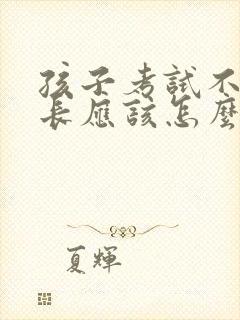 孩子考試不
長應該怎麼
夏輝